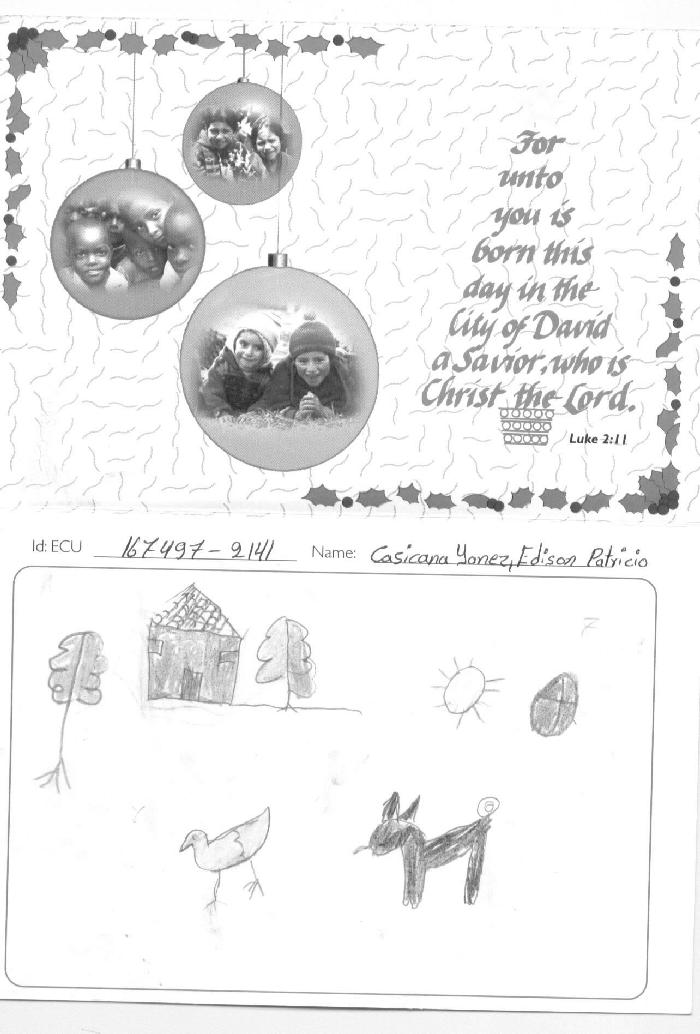 For
unto
you is
born this
day in the
City of David
a Savior, who is
Christ the Lord.
Luke 2:11
Id: ECU 167497-2141 Name: Casicana Yanez, Edison Patricio